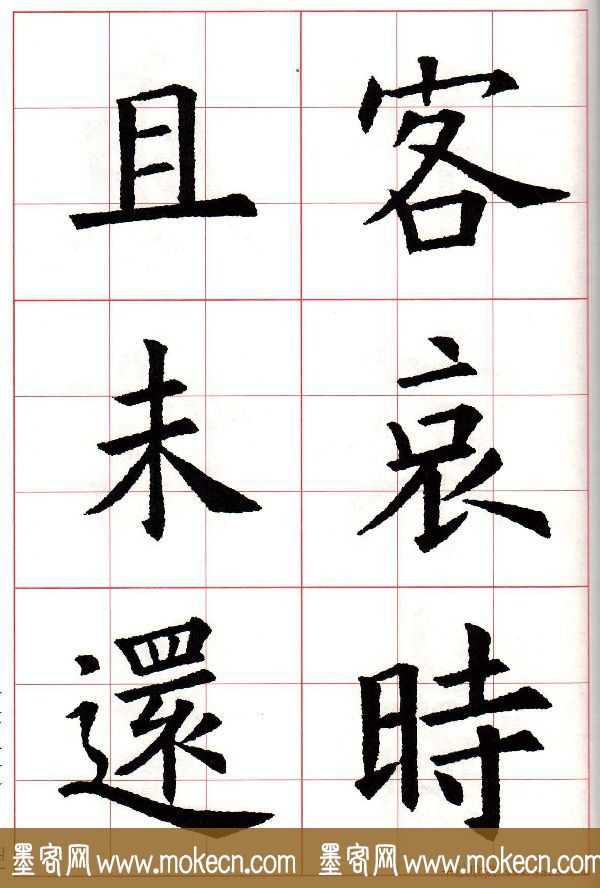 客哀時
且未還
墨客网 www.mokecn.com 墨客网 www.mokecn.com